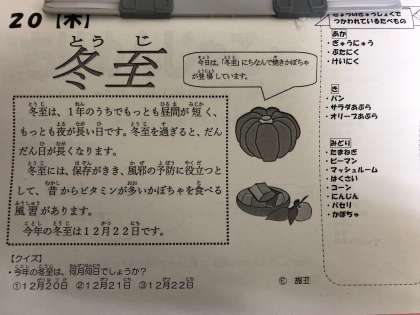 20【木】
とうじ
冬至
今日は、「冬至」にちなんで焼きかぼちゃ
が登場しています。
冬至は、1年のうちでもっとも昼間が短く、
もっとも夜が長い日です。冬至を過ぎると、だん
だん日が長くなります。
冬至には、保存がきき、風邪の予防に役立つと
して、昔からビタミンが多いかぼちゃを食べる
風習があります。
今年の冬至は12月22日です。
【クイズ】
・今年の冬至は、何月何日でしょうか?
①12月20日 ②12月21日 ③12月22日
きょうのきゅうしょくで
つかわれているたべもの
あか
・ぎゅうにゅう
・ぶたにく
・けいにく
き
・パン
・サラダあぶら
・オリーブあぶら
みどり
・たまねぎ
・ピーマン
・マッシュルーム
・はくさい
・コーン
・にんじん
・パセリ
・かぼちゃ